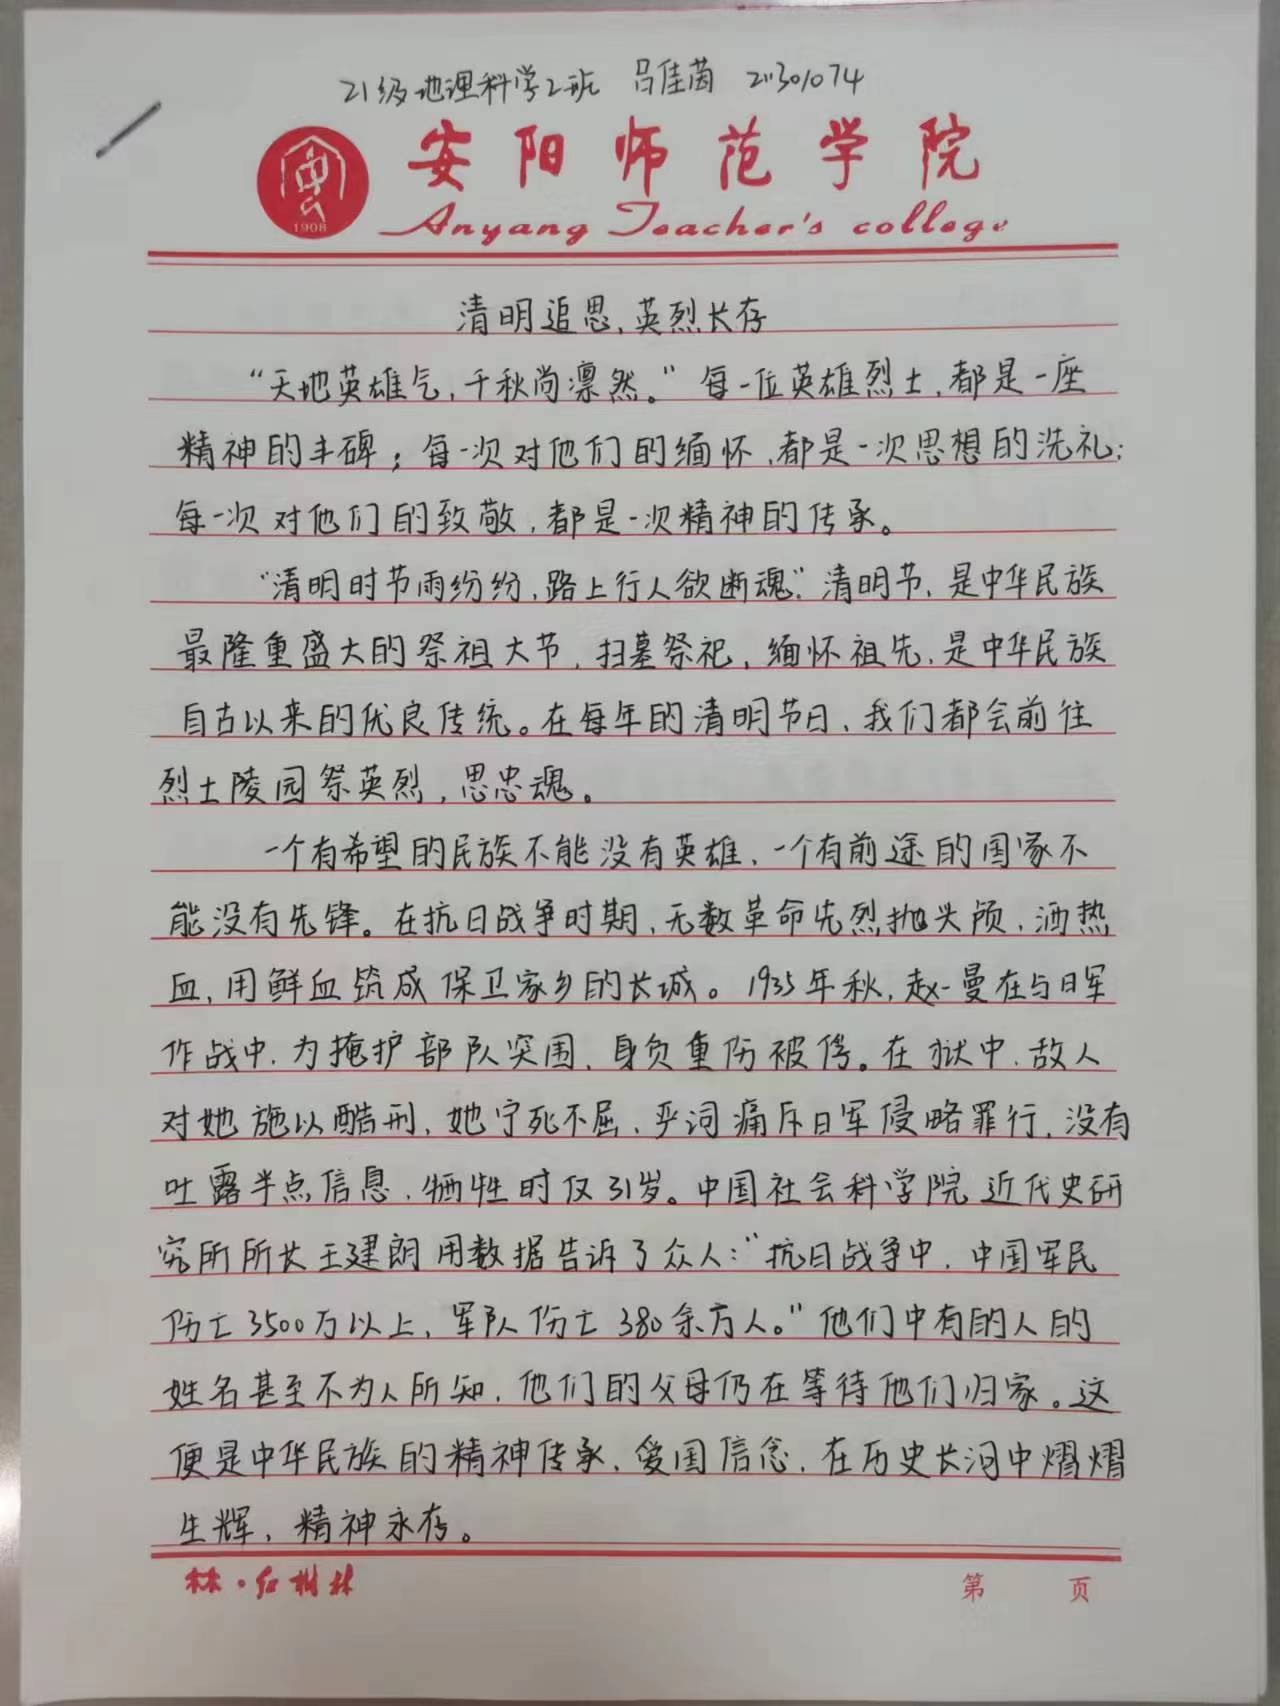 21级地理科学2班 吕佳茵 211301074
安阳师范学院
Anyang Teacher's college
1908
清明追思,英烈长存
“天地英雄气,千秋尚凛然。”每一位英雄烈士,都是一座
精神的丰碑;每一次对他们的缅怀,都是一次思想的洗礼;
每一次对他们的致敬,都是一次精神的传承。
“清明时节雨纷纷,路上行人欲断魂”.清明节,是中华民族
最隆重盛大的祭祖大节,扫墓祭祀,缅怀祖先,是中华民族
自古以来的优良传统。在每年的清明节日,我们都会前往
烈士陵园祭英烈,思忠魂。
一个有希望的民族不能没有英雄,一个有前途的国家不
能没有先锋。在抗日战争时期,无数革命先烈抛头颅,洒热
血,用鲜血筑成保卫家乡的长城。1935年秋,赵一曼在与日军
作战中,为掩护部队突围,身负重伤被俘。在狱中,敌人
对她施以酷刑,她宁死不屈,严词痛斥日军侵略罪行,没有
吐露半点信息,牺牲时仅31岁。中国社会科学院近代史研
究所所长王建朗用数据告诉了众人:“抗日战争中,中国军民
伤亡3500万以上,军队伤亡380余万人。”他们中有的人的
姓名甚至不为人所知,他们的父母仍在等待他们归家。这
便是中华民族的精神传承,爱国信念,在历史长河中熠熠
生辉,精神永存。
林·红树林
第 页